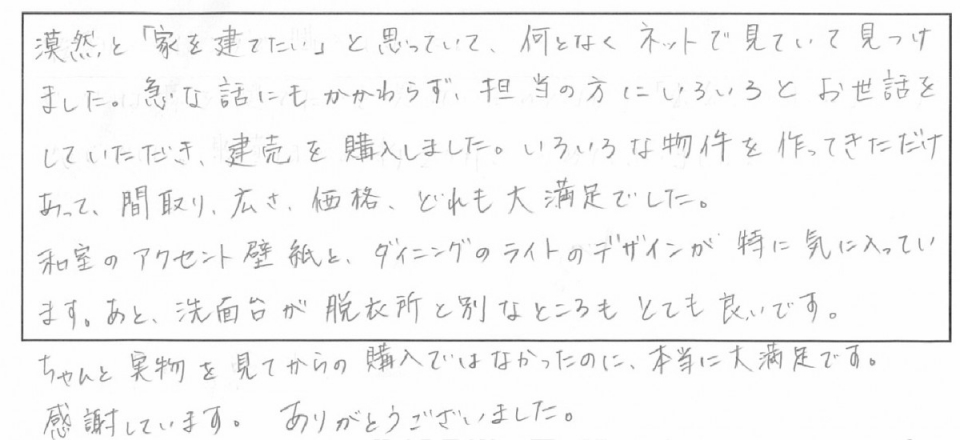 漠然と「家を建てたい」と思っていて、何となくネットで見ていて見つけ
ました。急な話にもかかわらず、担当の方にいろいろとお世話を
していただき、建売を購入しました。いろいろな物件を作ってきただけ
あって、間取り、広さ、価格、どれも大満足でした。
和室のアクセント壁紙と、ダイニングのライトのデザインが特に気に入ってい
ます。あと、洗面台が脱衣所と別なところもとても良いです。
ちゃんと実物を見てからの購入ではなかったのに、本当に大満足です。
感謝しています。 ありがとうございました。